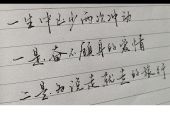 一生中至少两次冲动
一是奋不顾身的爱情
二是说走就走的旅行